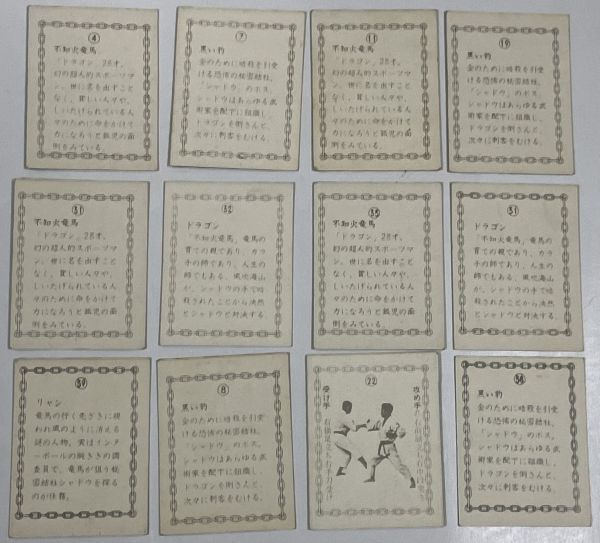 ④
不知火竜馬
「ドラゴン」28才、
幻の超人的スポーツマ
ン。世に名を出すこと
なく、貧しい人々や、
しいたげられている人
々のために命をかけて
力になろうと孤児の面
倒をみている。
⑦
黒い豹
金のために暗殺を引受
ける恐怖の秘密結社、
「シャドウ」のボス。
シャドウはあらゆる武
術家を配下に組織し、
ドラゴンを倒さんと、
次々に刺客をむける。
⑪
不知火竜馬
「ドラゴン」28才、
幻の超人的スポーツマ
ン。世に名を出すこと
なく、貧しい人々や、
しいたげられている人
々のために命をかけて
力になろうと孤児の面
倒をみている。
⑲
黒い豹
金のために暗殺を引受
ける恐怖の秘密結社、
「シャドウ」のボス。
シャドウはあらゆる武
術家を配下に組織し、
ドラゴンを倒さんと、
次々に刺客をむける。
不知火竜馬
「ドラゴン」28才、
幻の超人的スポーツマ
ン。世に名を出すこと
なく、貧しい人々や、
しいたげられている人
々のために命をかけて
力になろうと孤児の面
倒をみている。
ドラゴン
「不知火竜馬」竜馬の
育ての親であり、カラ
手の師であり、人生の
師でもある。風吹海山
が、シャドウの手で暗
殺されたことから決然
とシャドウと対決する。
不知火竜馬
「ドラゴン」28才、
幻の超人的スポーツマ
ン。世に名を出すこと
なく、貧しい人々や、
しいたげられている人
々のために命をかけて
力になろうと孤児の面
倒をみている。
ドラゴン
「不知火竜馬」竜馬の
育ての親であり、カラ
手の師であり、人生の
師でもある。風吹海山
が、シャドウの手で暗
殺されたことから決然
とシャドウと対決する。
リャン
竜馬の行く先ざきに現
われ風のように消える
謎の人物。実はインター
ポールの腕ききの調
査員で、竜馬が狙う秘
密結社シャドウを探る
のが任務。
⑧
黒い豹
金のために暗殺を引受
ける恐怖の秘密結社、
「シャドウ」のボス。
シャドウはあらゆる武
術家を配下に組織し、
ドラゴンを倒さんと、
次々に刺客をむける。
㉒
攻め手
受け手
黒い豹
金のために暗殺を引受
ける恐怖の秘密結社、
「シャドウ」のボス。
シャドウはあらゆる武
術家を配下に組織し、
ドラゴンを倒さんと、
次々に刺客をむける。